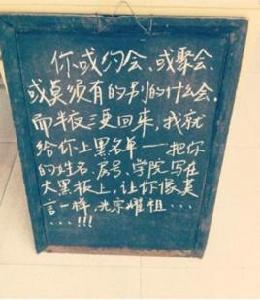 你或约会、或聚会
或莫须有的别的什么会,
而半夜三更回来,我就
给你上黑名单——把你
的姓名、房号、学院写在
大黑板上,让你像莫
言一样,光宗耀祖...
...!!!